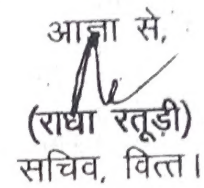 आज्ञा से,
(राधा रतूड़ी)
सचिव, वित्त।